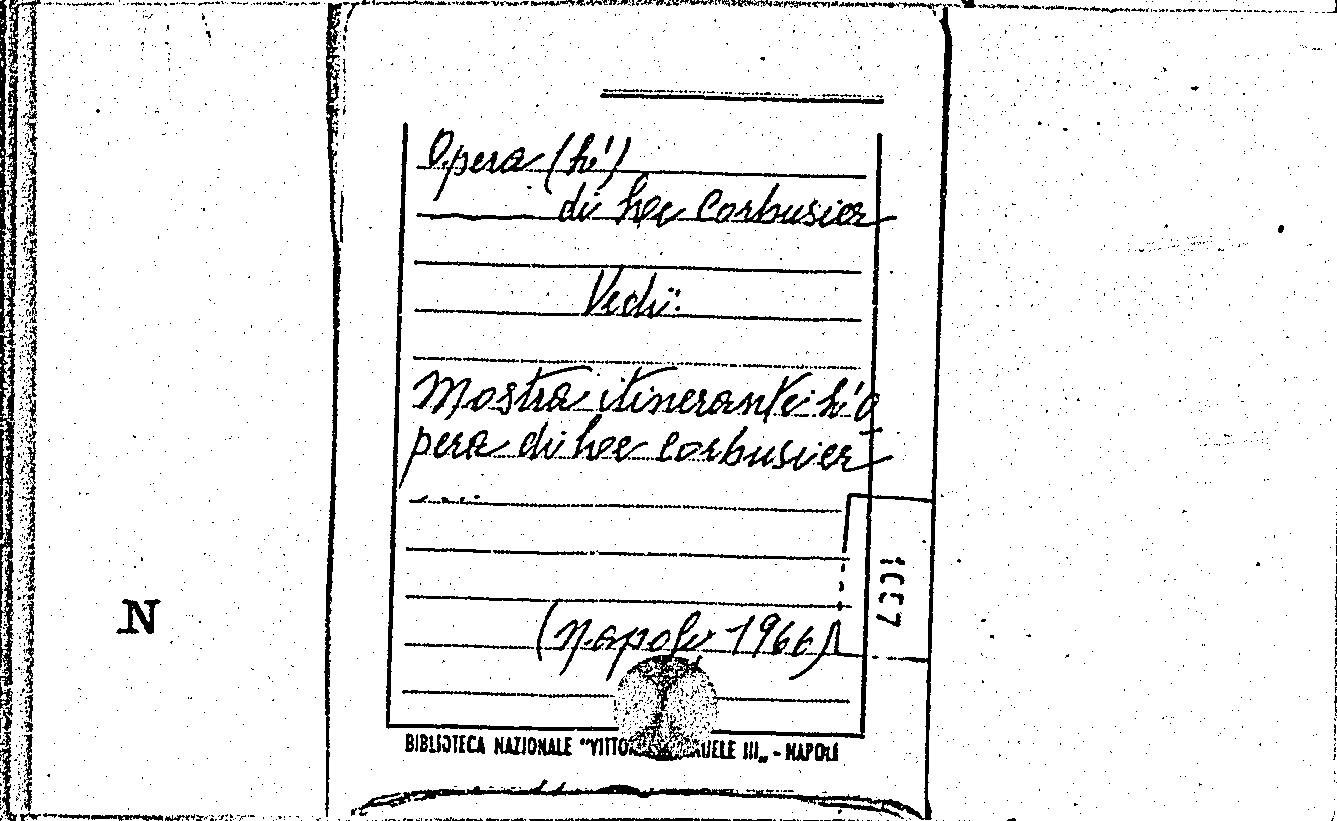 Opera (L')
di Le Corbusier
Vedi:
Mostra itinerante: L'o
pera di Le Corbusier
(Napoli 1966)
N
BIBLIOTECA NAZIONALE "VITTO UELE III„ - NAPOLI